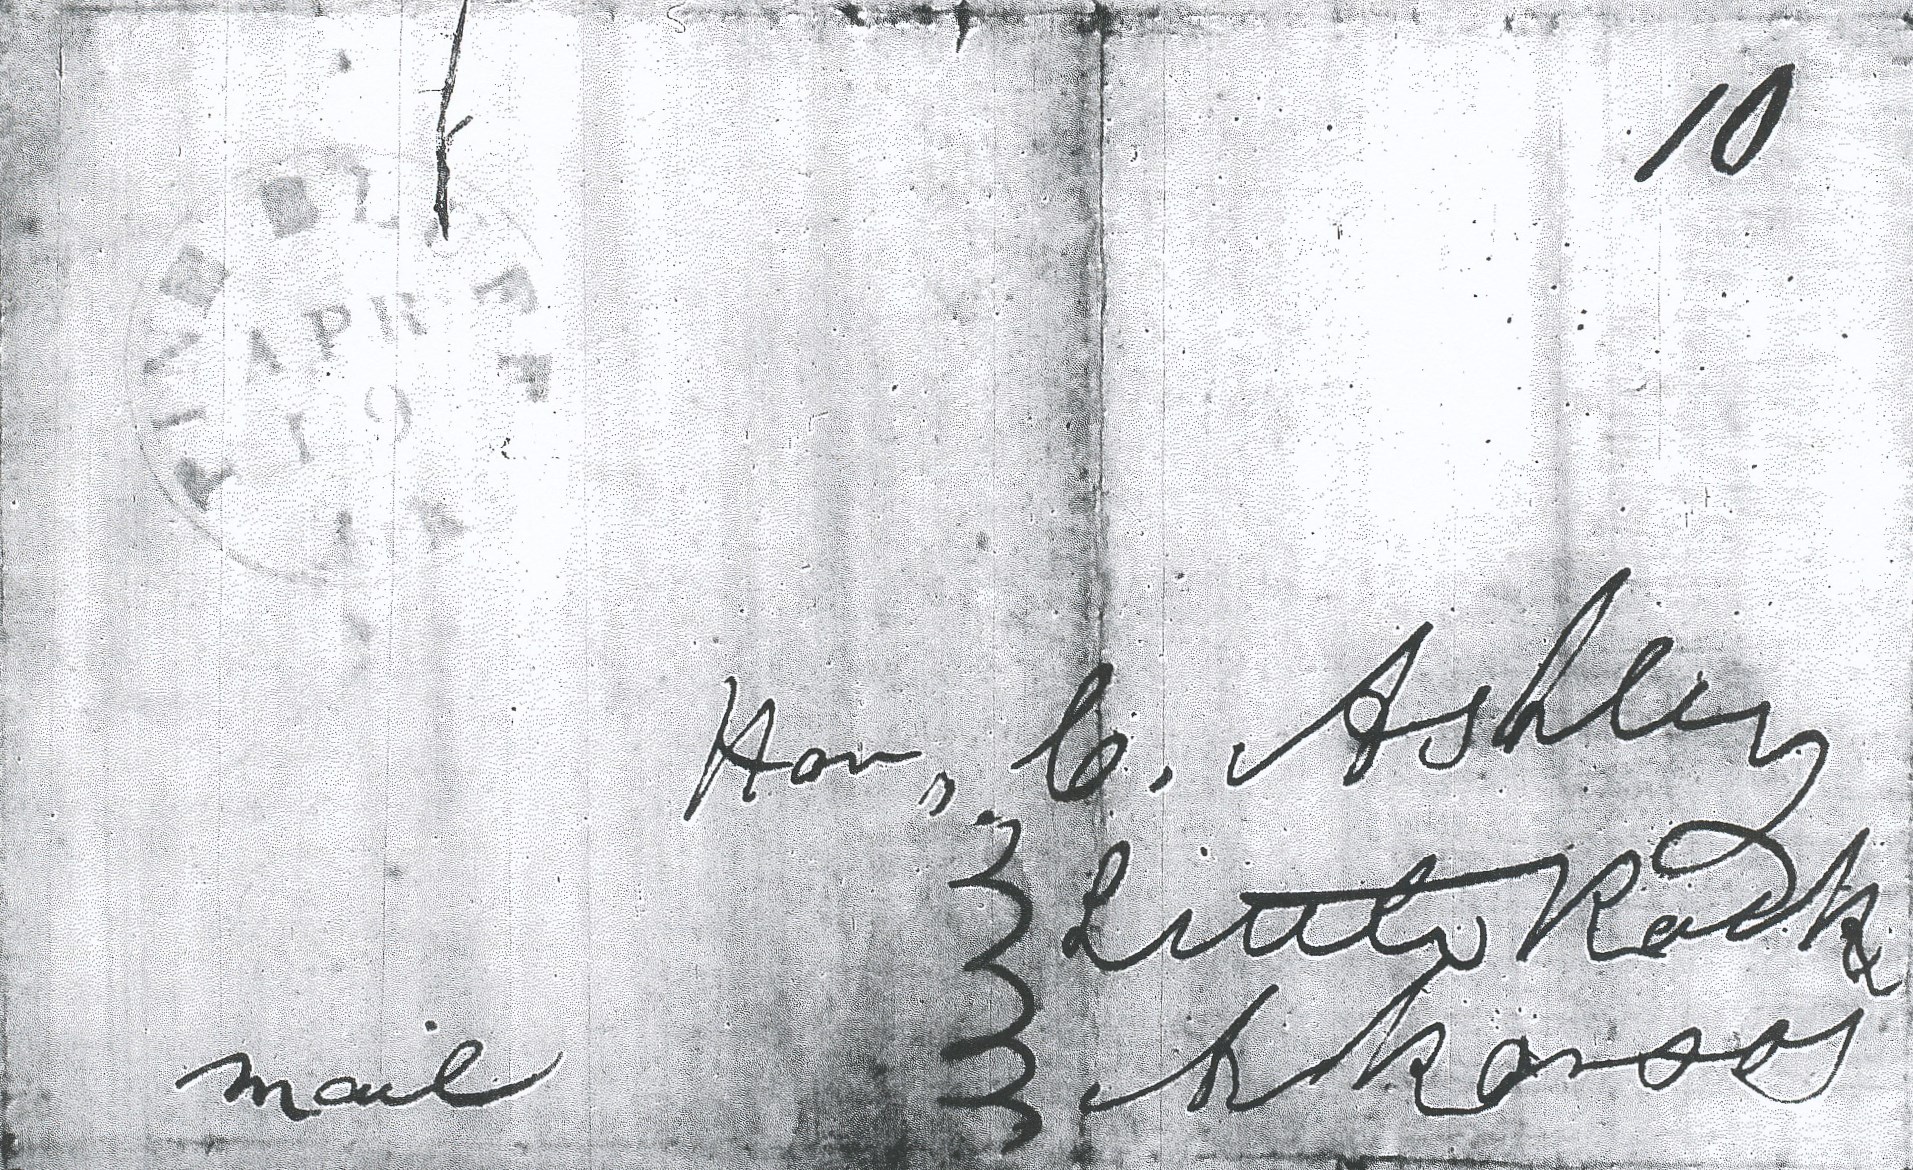 10
APR
19
Hon, C. Ashley
Little Rock
Arkansas
mail